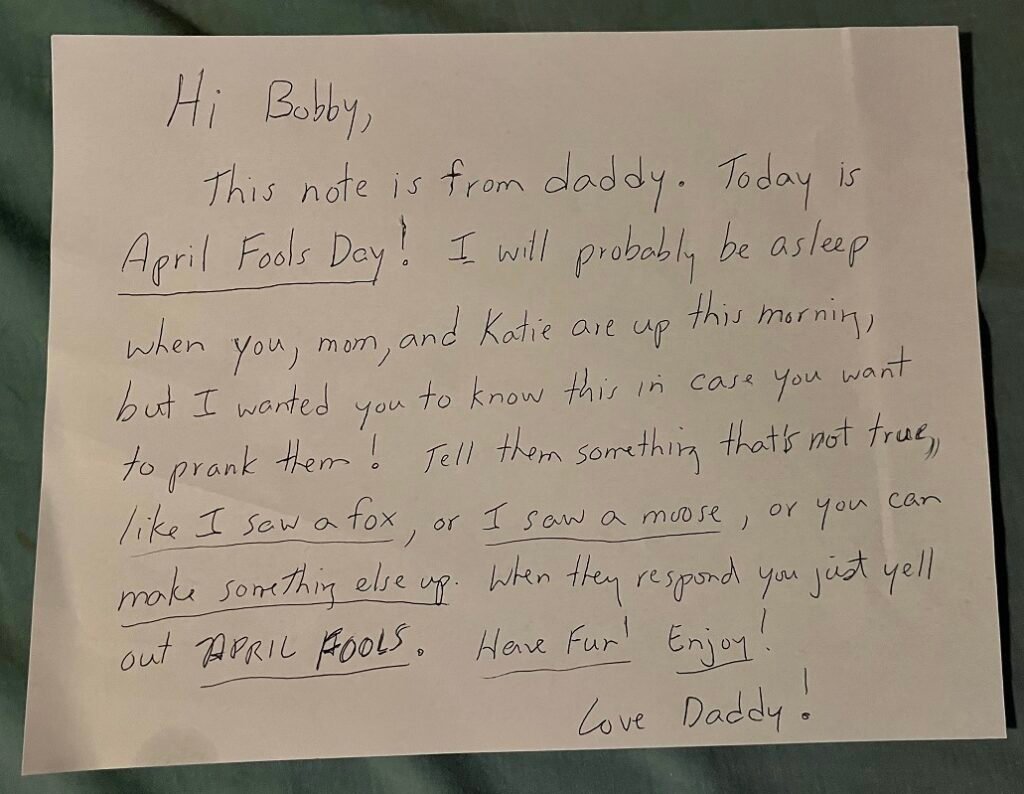 Hi Bobby,
This note is from daddy. Today is
April Fools Day! I will probably be asleep
when you, mom, and Katie are up this morning,
but I wanted you to know this in case you want
to prank them! Tell them something that's not true,
like I saw a fox, or I saw a moose, or you can
make something else up. When they respond you just yell
out APRIL FOOLS. Have Fun! Enjoy!
Love Daddy!